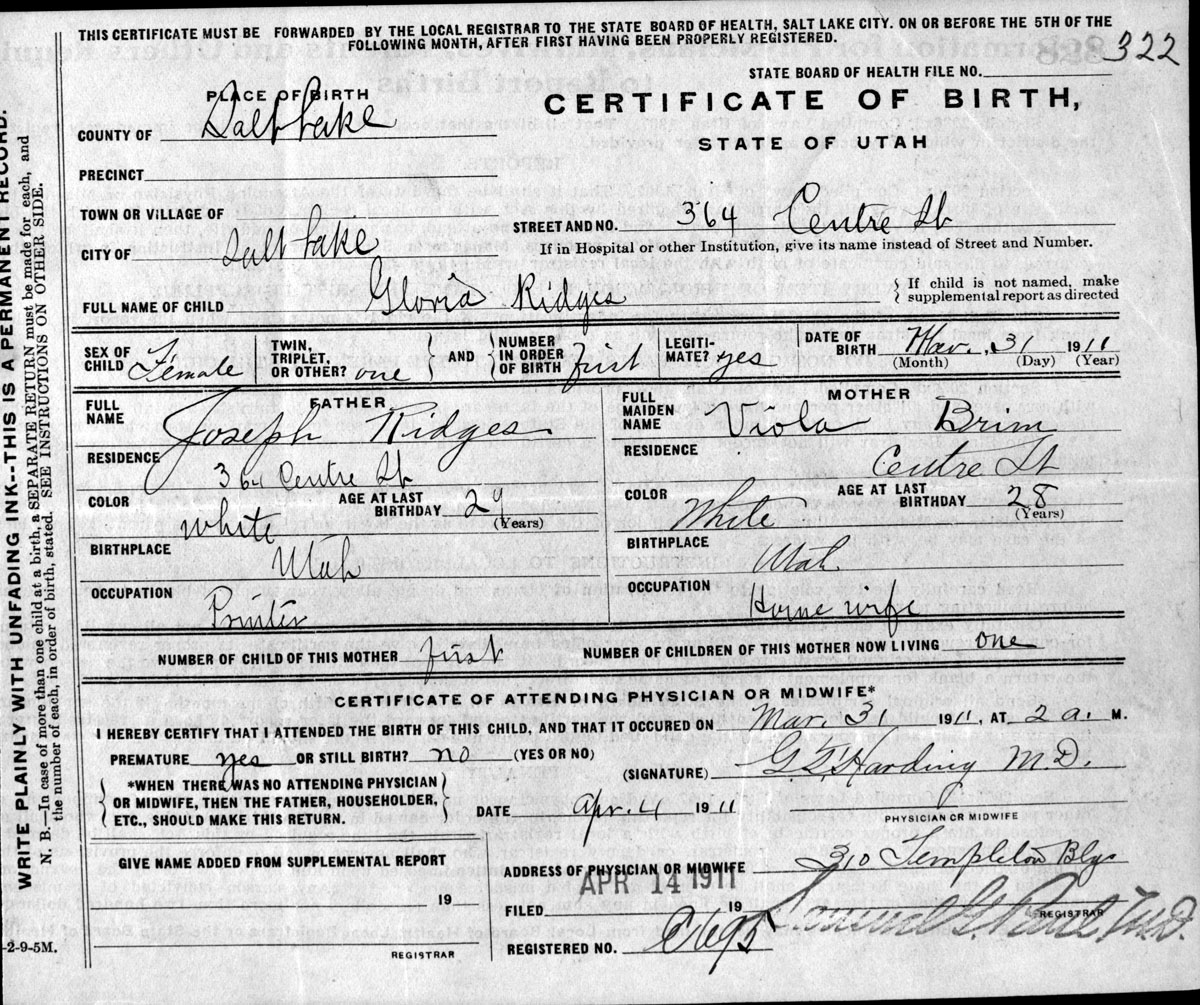 THIS CERTIFICATE MUST BE FORWARDED BY THE LOCAL REGISTRAR TO THE STATE BOARD OF HEALTH, SALT LAKE CITY. ON OR BEFORE THE 5TH OF THE
FOLLOWING MONTH, AFTER FIRST HAVING BEEN PROPERLY REGISTERED.
322
STATE BOARD OF HEALTH FILE NO.
PLACE OF BIRTH
CERTIFICATE OF BIRTH,
COUNTY OF Salt Lake
STATE OF UTAH
PRECINCT
TOWN OR VILLAGE OF
STREET AND NO. 364 Centre St
CITY OF Salt Lake
If in Hospital or other Institution, give its name instead of Street and Number.
FULL NAME OF CHILD Gloria Ridges
{ If child is not named, make
supplemental report as directed
SEX OF CHILD Female
TWIN, TRIPLET, OR OTHER? one } AND { NUMBER IN ORDER OF BIRTH first
LEGITI-MATE? yes
DATE OF BIRTH Mar. 31 1911
(Month) (Day) (Year)
FATHER
FULL NAME Joseph Ridges
RESIDENCE 364 Centre St
COLOR White
AGE AT LAST BIRTHDAY
(Years)
BIRTHPLACE Utah
OCCUPATION
MOTHER
FULL MAIDEN NAME Viola Brim
RESIDENCE Centre St
COLOR White
AGE AT LAST BIRTHDAY 28
(Years)
BIRTHPLACE Utah.
OCCUPATION House wife
NUMBER OF CHILD OF THIS MOTHER first
NUMBER OF CHILDREN OF THIS MOTHER NOW LIVING one
CERTIFICATE OF ATTENDING PHYSICIAN OR MIDWIFE*
I HEREBY CERTIFY THAT I ATTENDED THE BIRTH OF THIS CHILD, AND THAT IT OCCURED ON Mar. 31 1911, AT 2 a. M.
PREMATURE yes OR STILL BIRTH? no (YES OR NO)
(SIGNATURE) Harding M.D.
{ *WHEN THERE WAS NO ATTENDING PHYSICIAN
OR MIDWIFE, THEN THE FATHER, HOUSEHOLDER,
ETC., SHOULD MAKE THIS RETURN. }
DATE Apr. 4 1911
PHYSICIAN OR MIDWIFE
GIVE NAME ADDED FROM SUPPLEMENTAL REPORT
19
REGISTRAR
ADDRESS OF PHYSICIAN OR MIDWIFE 310 Templeton Blg
APR 14 1911
FILED 19
REGISTRAR
REGISTERED NO.
M.D.
WRITE PLAINLY WITH UNFADING INK--THIS IS A PERMANENT RECORD.
N. B.—In case of more than one child at a birth, a SEPARATE RETURN must be made for each, and
the number of each, in order of birth, stated. SEE INSTRUCTIONS ON OTHER SIDE.
-2-9-5M.